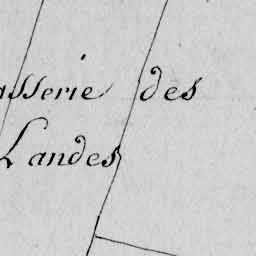 asserie des
Landes